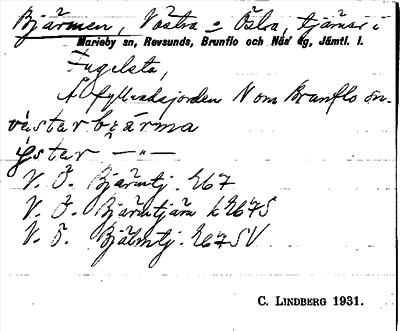 Bjärmen, Västra o Östra, tjärnar i
Marieby sn, Revsunds, Brunflo och Näs tg, Jämtl. l.
Fugelsta,
N om Brunflo sn.
västar bjärma
östar —"—
V. Ö. Bjärmtj. E67
V. Ö. Bjärmtjärn k E67S
V. Ö. Bjälmtj. E67SV
C. LINDBERG 1931.